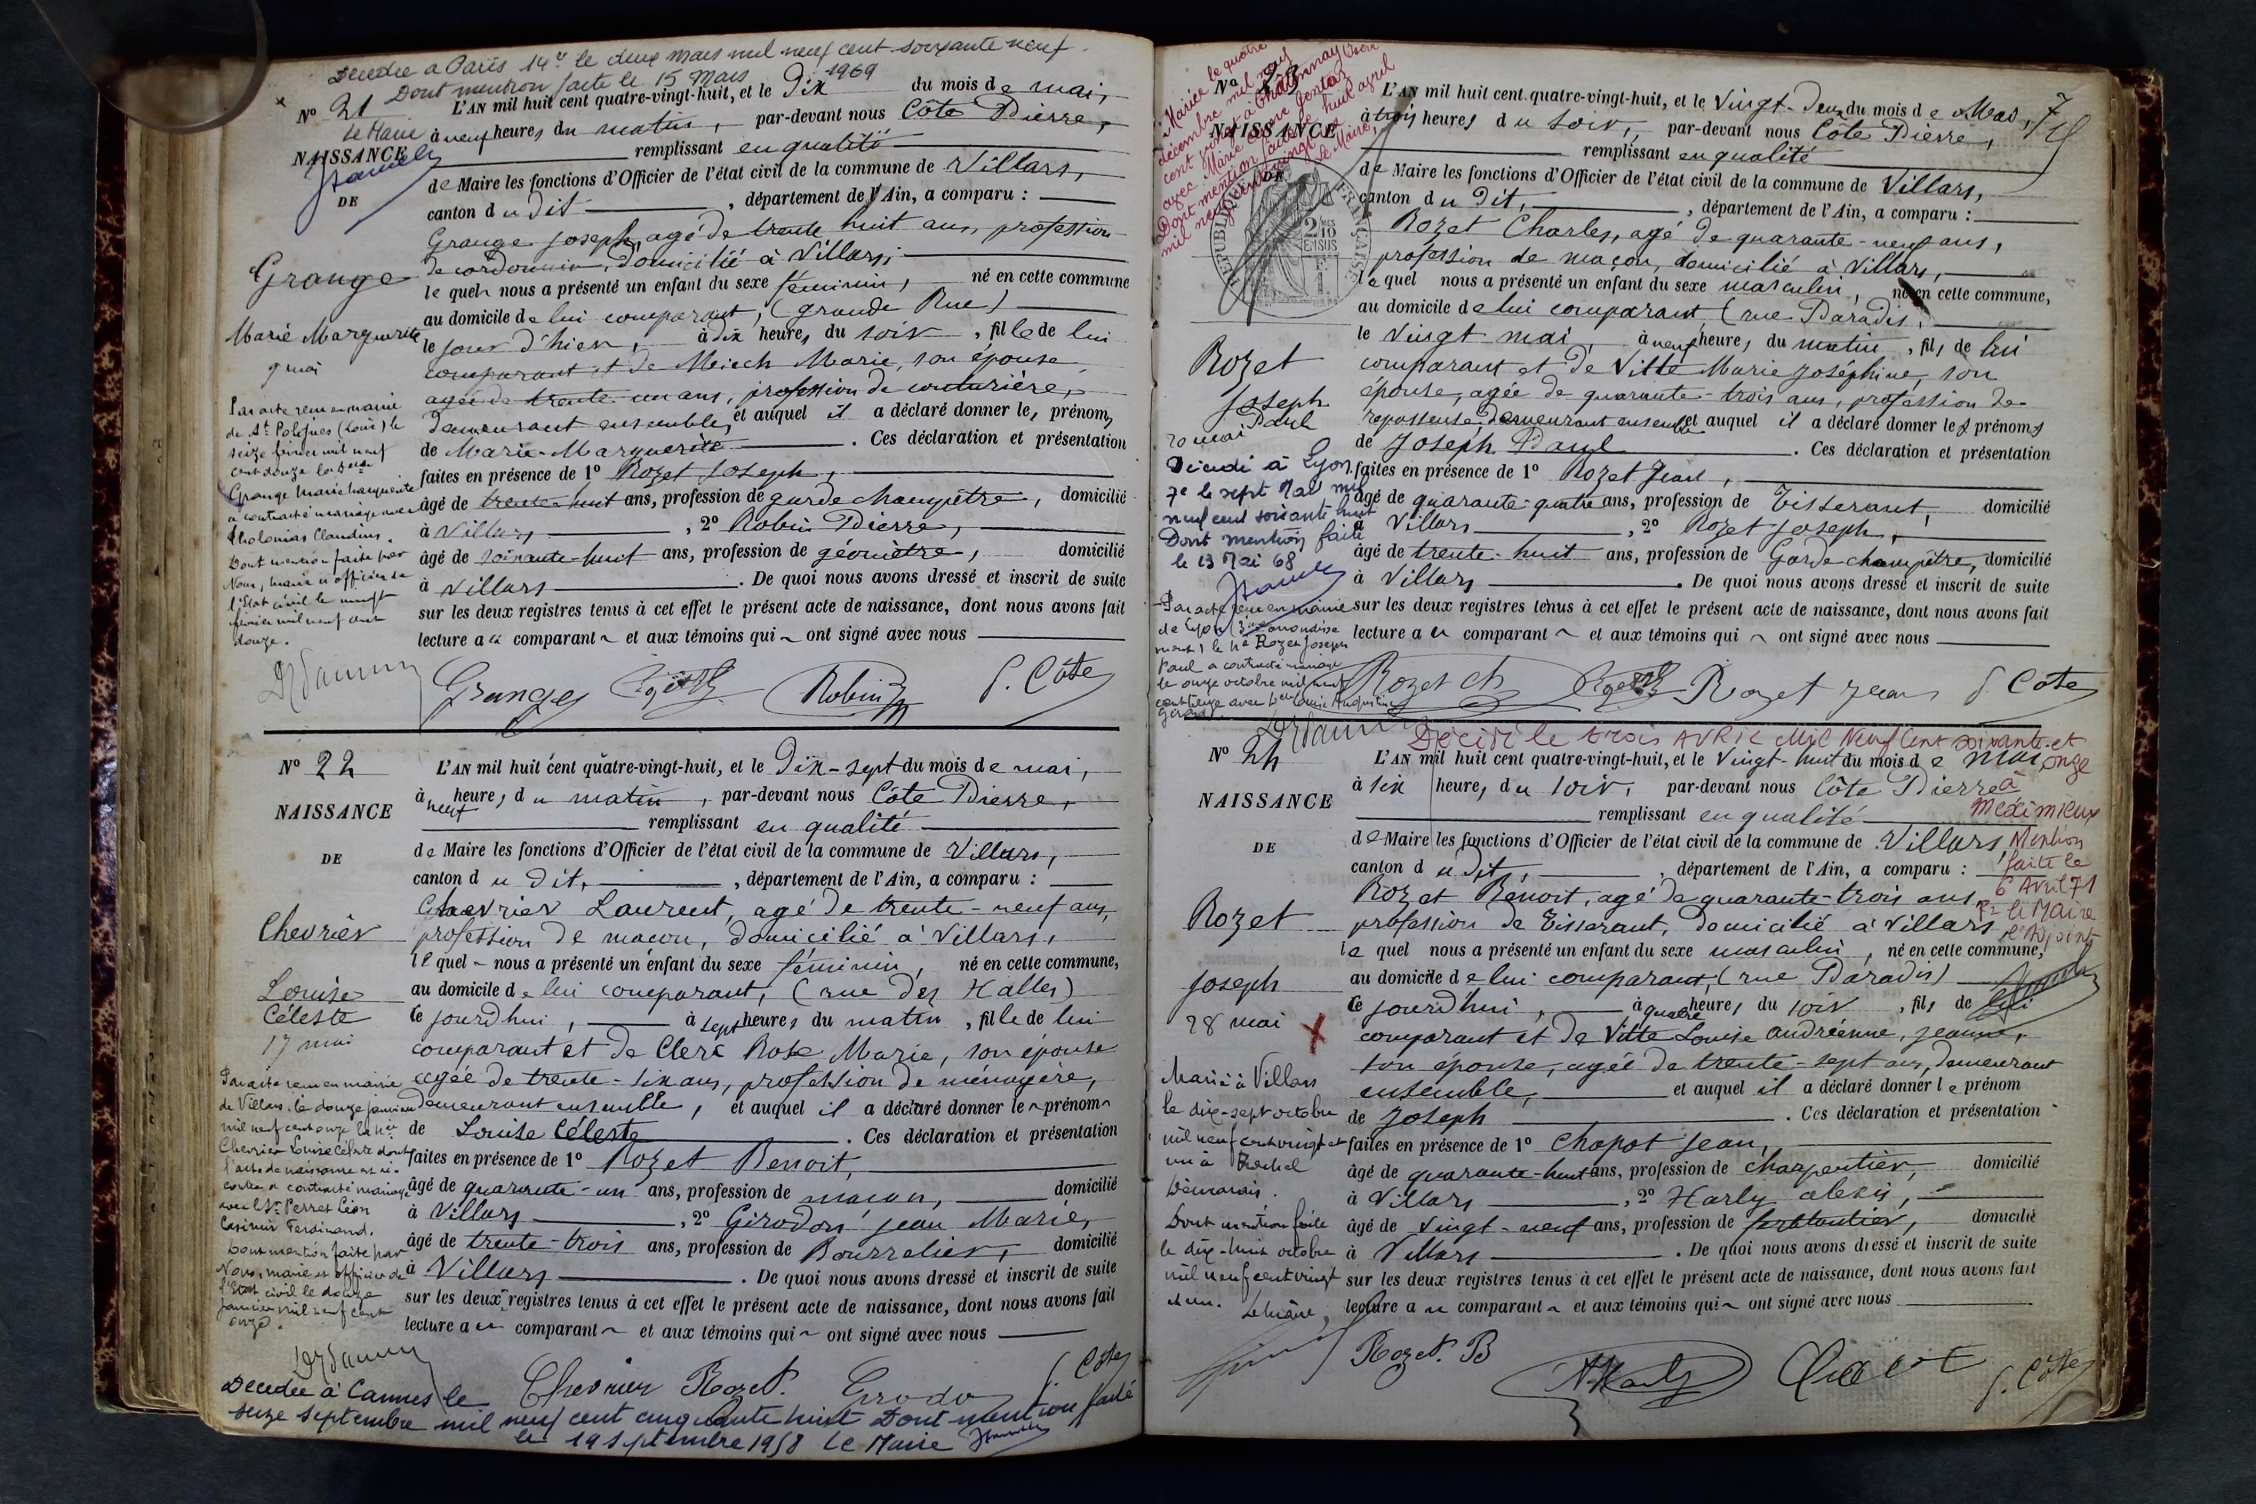 Décédée à Paris 14e le deux mars mil neuf cent soixante neuf.
Dont mention faite le 15 Mars 1969
Le Maire
No 21
NAISSANCE
DE
Grange
Marie Marguerite
9 mai
Par acte reçu en mairie
de St Polgues (Loire) le
seize février mil neuf
cent douze la dite
Grange Marie Marguerite
a contracté mariage avec
Tholomas Claudius.
Dont mention faite par
Nous, maire et officier de
l'Etat civil le
février mil neuf cent
douze.
L'AN mil huit cent quatre-vingt-huit, et le Dix du mois de mai,
à neuf heures du matin, par-devant nous Côte Pierre,
remplissant en qualité
de Maire les fonctions d'Officier de l'état civil de la commune de Villars,
canton du dit, département de l'Ain, a comparu :
Grange Joseph, agé de trente huit ans, profession
de cordonnier, domicilié à Villars,
lequel nous a présenté un enfant du sexe féminin, né en cette commune
au domicile de lui comparant, (grande Rue)
le jour d'hier, à dix heures du soir, fille de lui
comparant et de Miech Marie, son épouse
agée de trente un ans, profession de couturière,
demeurant ensemble, et auquel il a déclaré donner les prénoms
de Marie-Marguerite. Ces déclaration et présentation
faites en présence de 1o Rozet Joseph,
âgé de trente-huit ans, profession de garde champêtre, domicilié
à Villars, 2o Robin Pierre,
âgé de soixante-huit ans, profession de géomètre, domicilié
à Villars. De quoi nous avons dressé et inscrit de suite
sur les deux registres tenus à cet effet le présent acte de naissance, dont nous avons fait
lecture au comparant et aux témoins qui ont signé avec nous
Grange Robin P. Côte
No 22
NAISSANCE
DE
Chevrier
Louise
Céleste
17 mai
Par acte reçu en mairie
de Villars le douze janvier
mil neuf cent onze la née
Chevrier Louise Céleste dont
l'acte de naissance est ci-
contre a contracté mariage
avec le Sr Perret Léon
Casimir Ferdinand.
Dont mention faite par
Nous, maire et officier de
l'Etat civil le douze
janvier mil neuf cent
onze.
L'AN mil huit cent quatre-vingt-huit, et le Dix-sept du mois de mai,
à neuf heures du matin, par-devant nous Côte Pierre,
remplissant en qualité
de Maire les fonctions d'Officier de l'état civil de la commune de Villars,
canton du dit, département de l'Ain, a comparu :
Chevrier Laurent, agé de trente-neuf ans,
profession de maçon, domicilié à Villars,
lequel nous a présenté un enfant du sexe féminin, né en cette commune,
au domicile de lui comparant, (rue des Halles)
ce jourd'hui, à sept heures du matin, fille de lui
comparant et de Clerc Rose Marie, son épouse
agée de trente-six ans, profession de ménagère,
demeurant ensemble, et auquel il a déclaré donner le prénom
de Louise Céleste. Ces déclaration et présentation
faites en présence de 1o Rozet Benoit,
âgé de quarante-un ans, profession de maçon, domicilié
à Villars, 2o Girodon Jean Marie,
âgé de trente-trois ans, profession de Bourrelier, domicilié
à Villars. De quoi nous avons dressé et inscrit de suite
sur les deux registres tenus à cet effet le présent acte de naissance, dont nous avons fait
lecture au comparant et aux témoins qui ont signé avec nous
Chevrier Rozet. P. Côte
Décédée à Cannes le
seize septembre mil neuf cent cinquante huit Dont mention faite
le 19 septembre 1958 Le Maire
Mariée le quatre
décembre mil neuf
cent vingt à
avec Marie
Dont mention faite le huit avril
mil neuf cent vingt
Le Maire,
No 23
NAISSANCE
DE
RÉPUBLIQUE FRANÇAISE
2/10 EN SUS
Rozet
Joseph
Paul
20 mai
Décédé à Lyon
7e le sept Mai mil
neuf cent soixante huit
Dont mention faite
le 13 Mai 68
Par acte reçu en mairie
de Lyon (3me arrondisse
ment) le né Rozet Joseph
Paul a contracté mariage
le onze octobre mil neuf
cent treize avec
L'AN mil huit cent quatre-vingt-huit, et le Vingt-Deux du mois de Mai,
à trois heures du soir, par-devant nous Côte Pierre,
remplissant en qualité
de Maire les fonctions d'Officier de l'état civil de la commune de Villars,
canton du dit, département de l'Ain, a comparu :
Rozet Charles, agé de quarante-neuf ans,
profession de maçon, domicilié à Villars,
lequel nous a présenté un enfant du sexe masculin, né en cette commune,
au domicile de lui comparant (rue Paradis,
le Vingt mai, à neuf heures du matin, fils de lui
comparant et de Vitte Marie Joséphine, son
épouse, agée de quarante-trois ans, profession de
repasseuse, demeurant ensemble et auquel il a déclaré donner les prénoms
de Joseph Paul. Ces déclaration et présentation
faites en présence de 1o Rozet Jean,
âgé de quarante-quatre ans, profession de Tisserant, domicilié
à Villars, 2o Rozet Joseph,
âgé de trente-huit ans, profession de Garde champêtre, domicilié
à Villars. De quoi nous avons dressé et inscrit de suite
sur les deux registres tenus à cet effet le présent acte de naissance, dont nous avons fait
lecture au comparant et aux témoins qui ont signé avec nous
Rozet Ch Rozet Jean P. Côte
Décédé le trois AVRIL Mil Neuf Cent soixante et
onze
à
Meximieux
Mention
faite le
6 Avril 71
Pr le Maire
l'Adjoint
No 24
NAISSANCE
DE
Rozet
Joseph
28 mai
X
Marié à Villars
le dix-sept octobre
mil neuf cent vingt et
un à
Dont mention faite
le dix-huit octobre
mil neuf cent vingt
et un. Le Maire,
L'AN mil huit cent quatre-vingt-huit, et le Vingt-huit du mois de mai,
à six heures du soir, par-devant nous Côte Pierre
remplissant en qualité
de Maire les fonctions d'Officier de l'état civil de la commune de Villars,
canton du dit, département de l'Ain, a comparu :
Rozet Bénoit, agé de quarante-trois ans,
profession de Tisserant, domicilié à Villars,
lequel nous a présenté un enfant du sexe masculin, né en cette commune,
au domicile de lui comparant, (rue Paradis)
ce jourd'hui, à quatre heures du soir, fils de lui
comparant et de Vitte Louise andréenne, jeanne,
son épouse, agée de trente-sept ans, demeurant
ensemble, et auquel il a déclaré donner le prénom
de Joseph. Ces déclaration et présentation
faites en présence de 1o Chapot Jean,
âgé de quarante-huit ans, profession de charpentier, domicilié
à Villars, 2o Harly alexis,
âgé de vingt-neuf ans, profession de ferblantier, domicilié
à Villars. De quoi nous avons dressé et inscrit de suite
sur les deux registres tenus à cet effet le présent acte de naissance, dont nous avons fait
lecture au comparant et aux témoins qui ont signé avec nous
Rozet. B A. Harly Chapot P. Côte